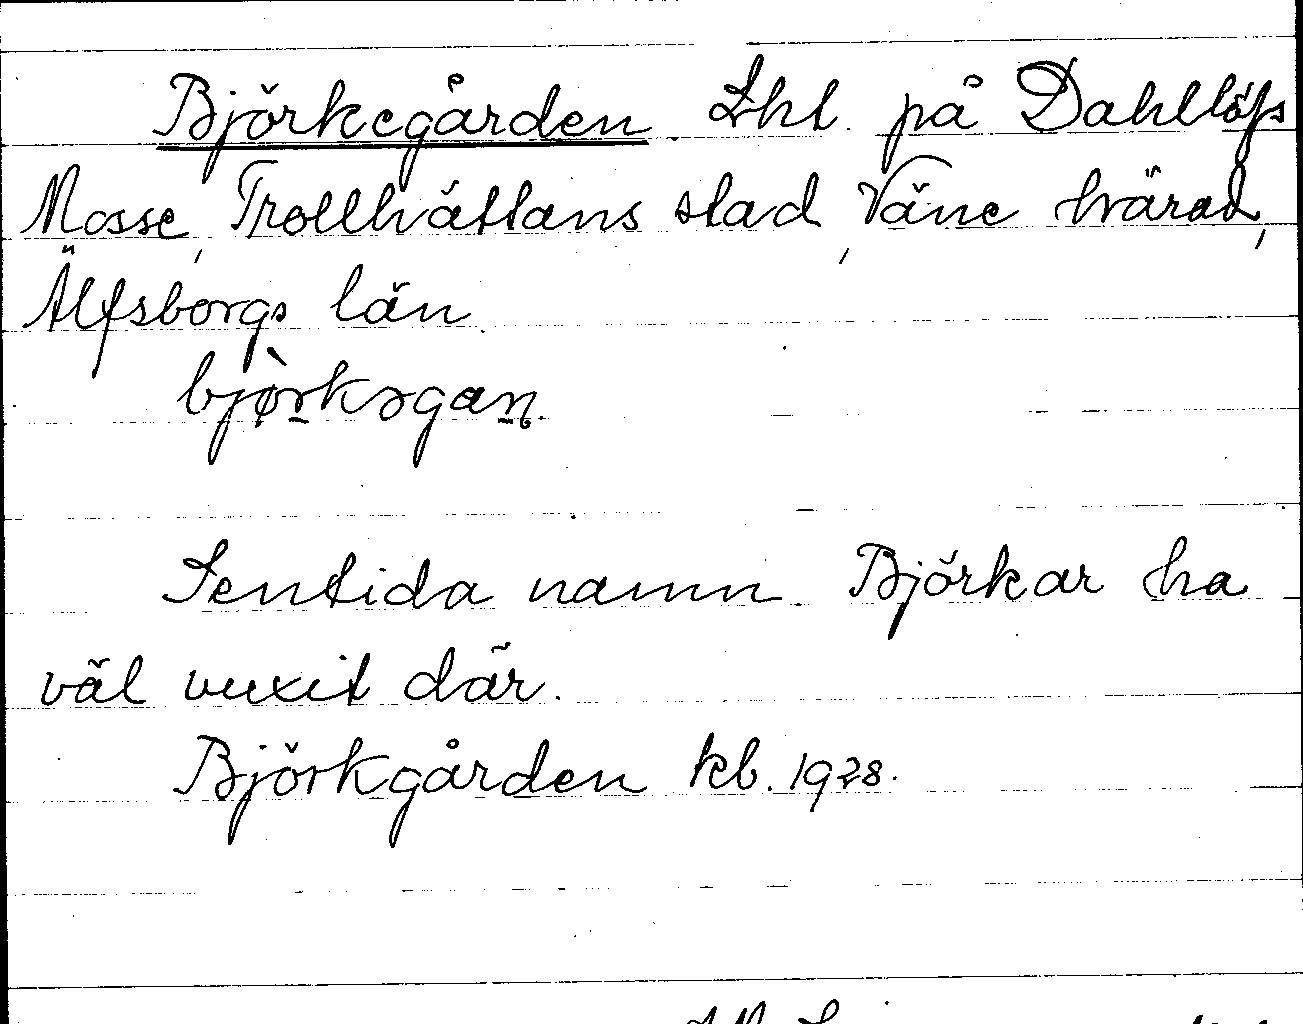 Björkegården. Lht. på Dahllöfs
Mosse, Trollhättans stad, Väne härad,
Älfsborgs län.
bjò̤rkəgaṉ.
Sentida namn. Björkar ha
väl vuxit där.
Björkgården kb. 1928.